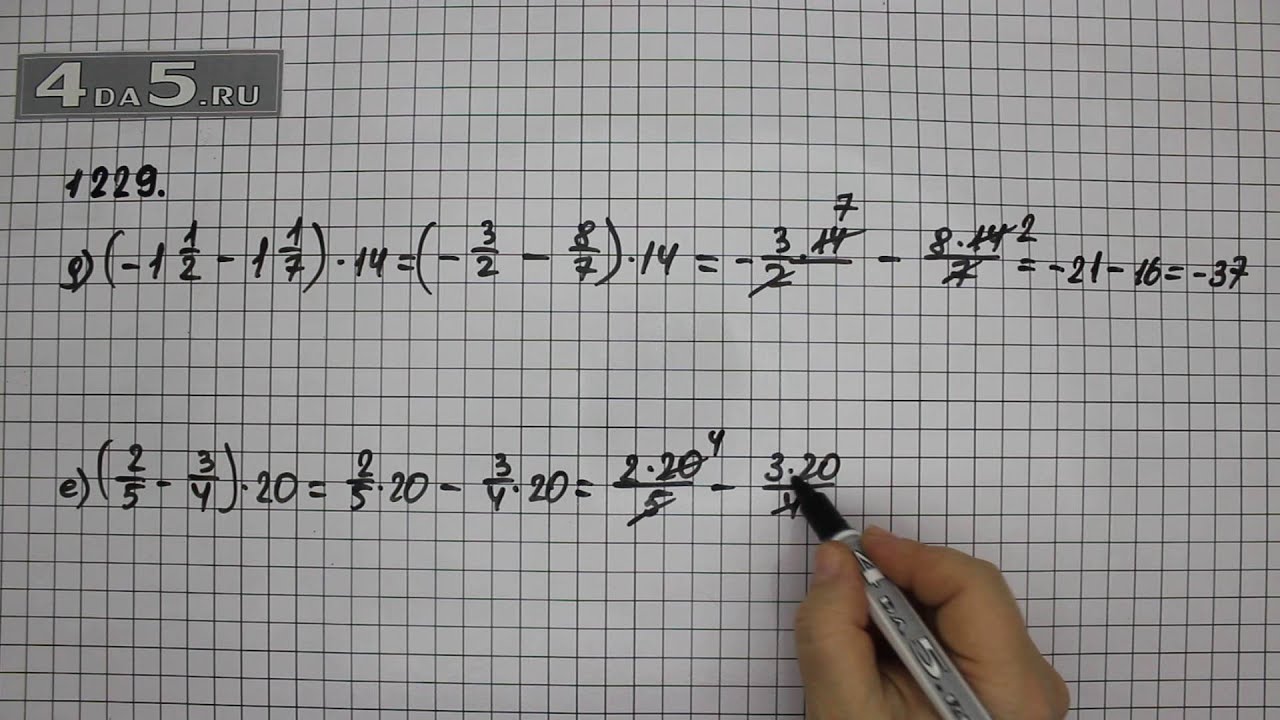 4DA5.RU
1229.
д) (-1 1/2 - 1 1/7) · 14 = (- 3/2 - 8/7) · 14 = - 3 · 14/2 7 - 8 · 14/7 2 = -21 - 16 = -37
е) (2/5 - 3/4) · 20 = 2/5 · 20 - 3/4 · 20 = 2 · 20/5 4 - 3 · 20/4
4DA5.